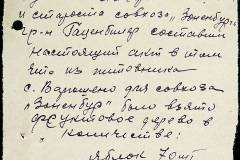 и староста совхоза „Зоненбург"
гр-н Гаценбиллер составили
настоящий акт в том
что из питомника
с. Взрошено для совхоза
„Зоненбург" было взято
фруктовое дерево в
количестве:
яблок 70 шт